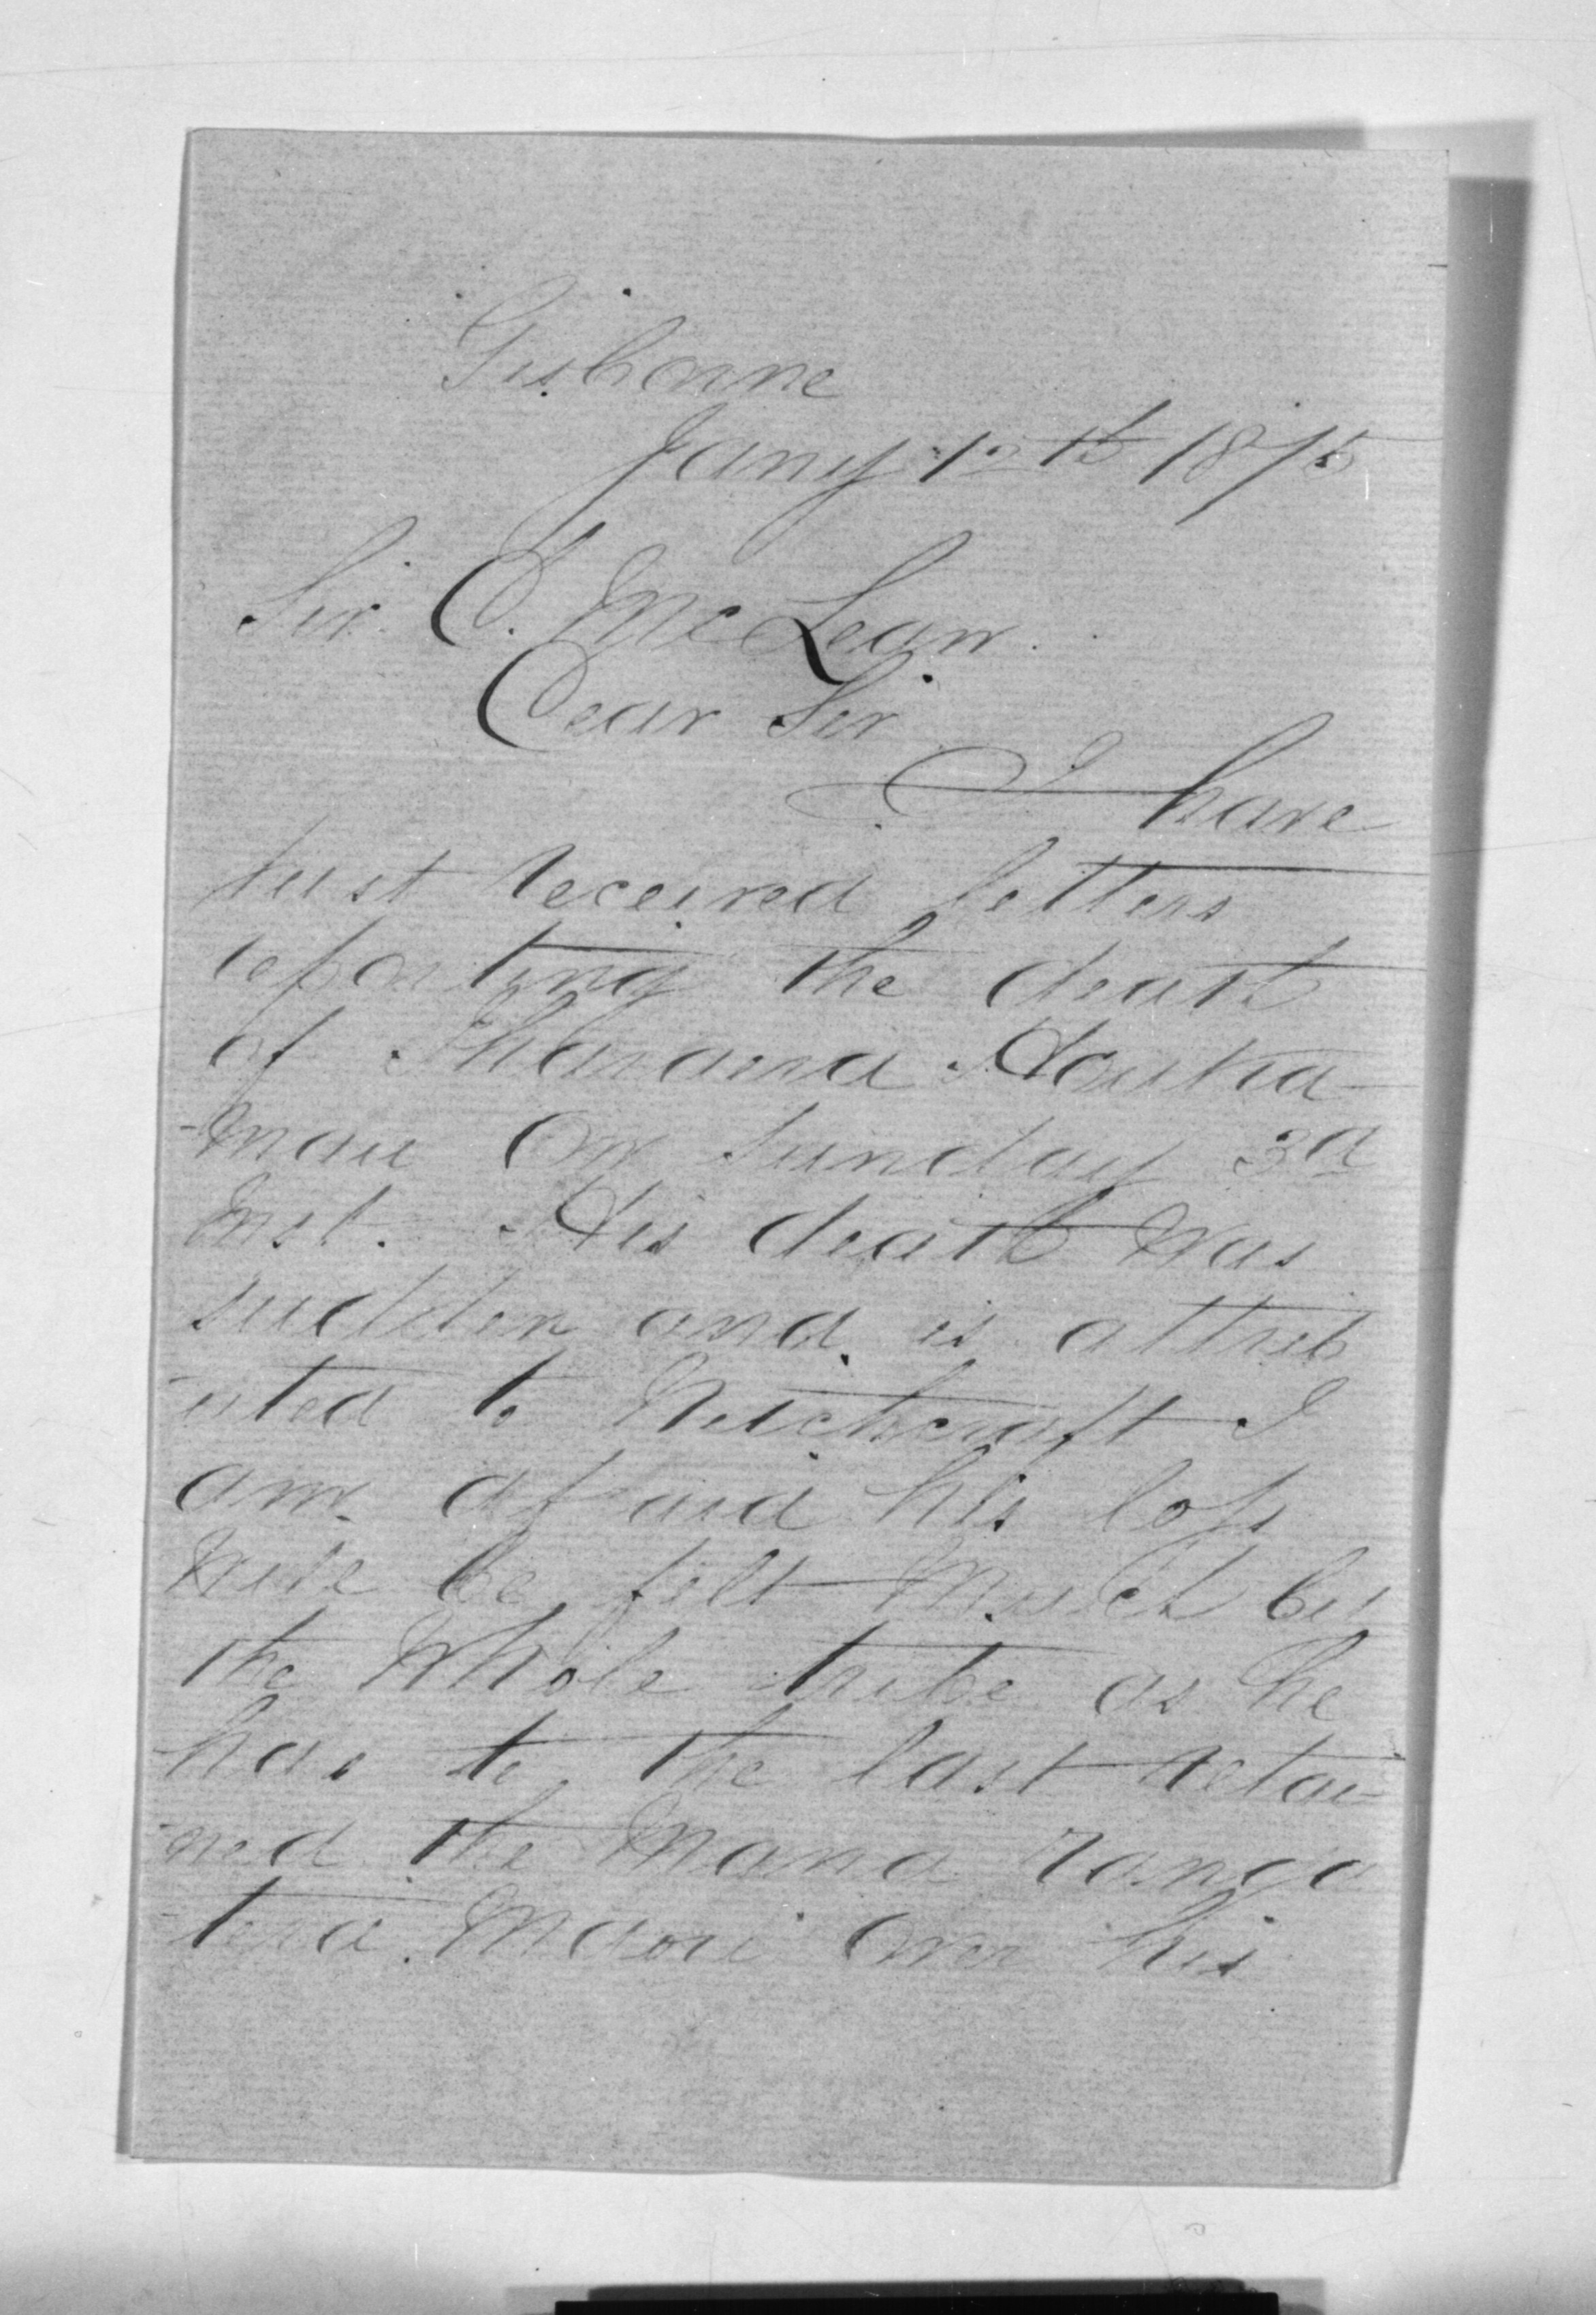 Gisborne
Jany 12th 1875
Sir D. McLean.
Dear Sir
I have
just received letters
reporting the death
of Iharaira Houka-
-mau on Sunday 3d
Inst. His death was
sudden and is attrib
-uted to Witchcraft I
am afraid his loss
will be felt much by
the whole tribe as he
has to the last retai-
-ned the mana ranga
-tira Maori over his